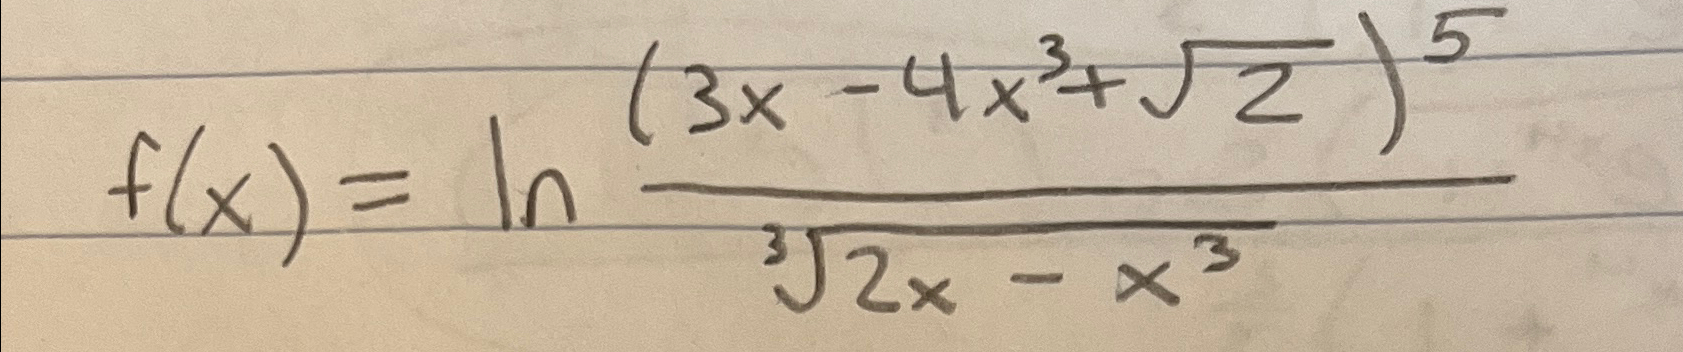 f(x) = ln \frac{(3x - 4x^3 + \sqrt{2})^5}{\sqrt[3]{2x - x^3}}